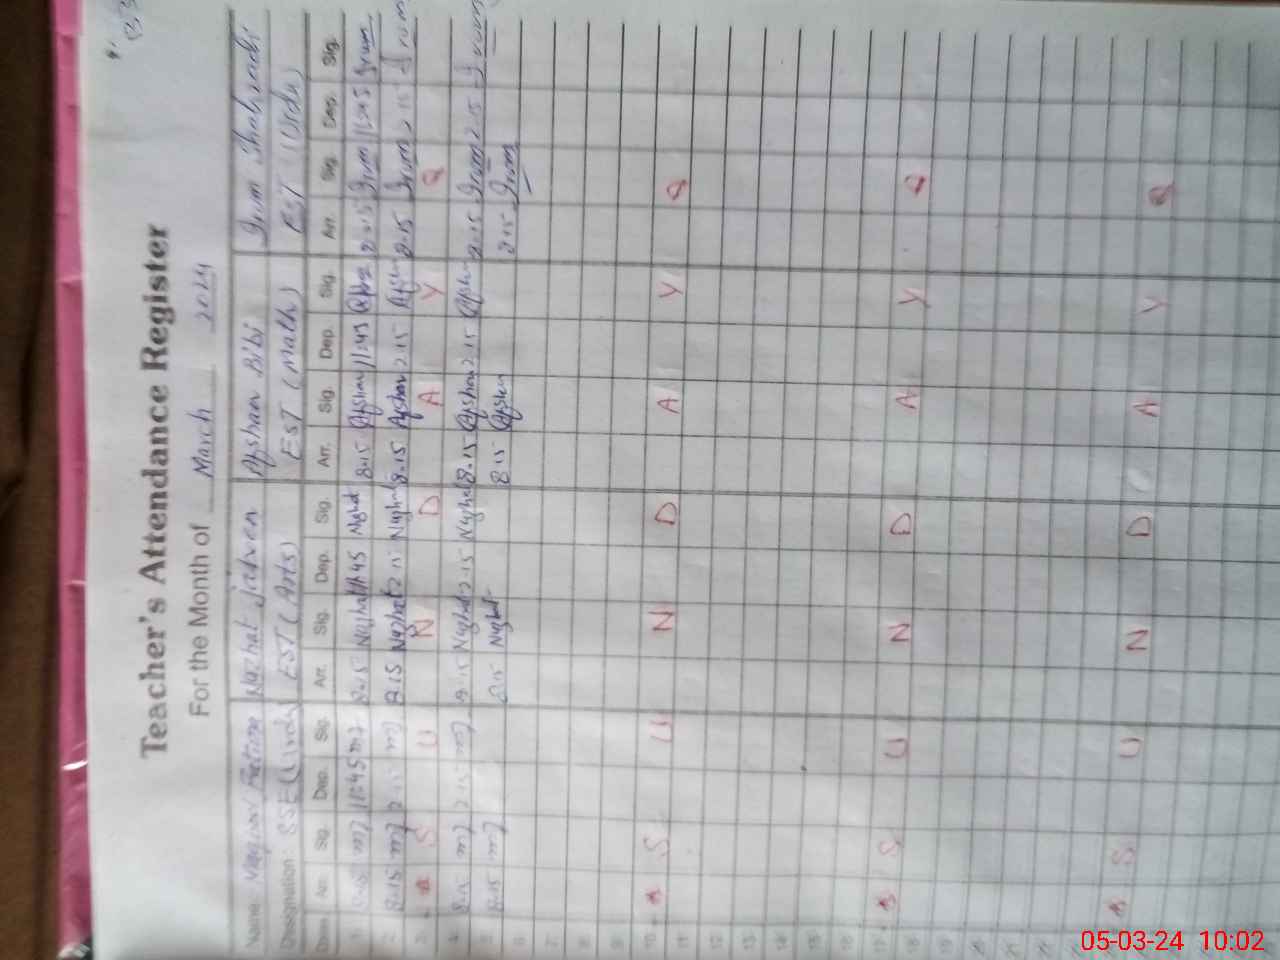 Teacher's Attendance Register
For the Month of March 2024
Name: Fatima Nazhat Afshan Bibi Irum Shahzadi
Designation: SSE(Urdu) EST (Arts) EST (Math) EST (Urdu)
Date Arr. Sig. Dep. Sig. Arr. Sig. Dep. Sig. Arr. Sig. Dep. Sig. Arr. Sig. Dep. Sig.
1 8:15 11:45 8:15 Nazhat 11:45 Nazhat 8:15 Afshan 11:45 8:15 Irum 11:45 Irum
2 8:15 2:15 8:15 Nazhat 2:15 8:15 Afshan 2:15 Afshan 8:15 Irum 2:15 Irum
3 S U N D A Y
4 8:15 2:15 8:15 Nazhat 2:15 Nazhat 8:15 Afshan 2:15 Afshan 8:15 Irum 2:15 Irum
5 8:15 8:15 Nazhat 8:15 Afshan 8:15 Irum
6
7
8
9
10 S U N D A Y
11
12
13
14
15
16
17 S U N D A Y
18
19
20
21
22
23
S U N D A Y
05-03-24 10:02